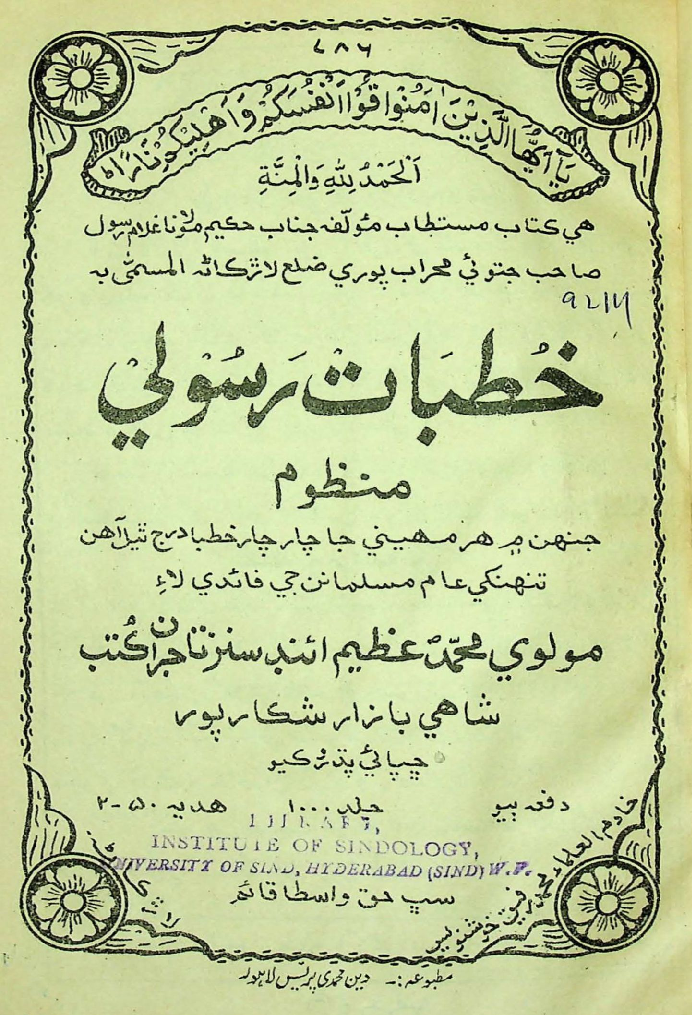 ٧٨٦
يَآ اَيُّهَا الَّذِيْنَ اٰمَنُوْا قُوْآ اَنْفُسَكُمْ وَ اَهْلِيْكُمْ نَارًا ط
اَلْحَمْدُ لِلّٰهِ وَالْمِنَّةِ
هي ڪتاب مستطاب مؤلّفہ جناب حڪيم مولانا غلام رسول
صاحب جتوئي محراب پوري ضلع لاڙڪاڻہ المسمّٰی بہ
خُطبَات رَسُولي
منظوم
جنهن ۾ هر مهيني جا چار چار خطبا درج ٿيل آهن
تنهنکي عام مسلمانن جي فائدي لاءِ
مولوي محمّد عظيم ائنڊ سنز تاجرانِ ڪُتب
شاهي بازار شڪارپور
ڇپائي پڌرُ ڪيو
دفعہ ٻيو جلد ١٠٠٠ هديہ ٥٠-٢
LIBRARY,
INSTITUTE OF SINDOLOGY,
UNIVERSITY OF SIND, HYDERABAD (SIND) W.P.
سڀ حق واسطا قائم
خادم العلماء محمد رفيق خوشنويس
مطبوعہ:۔ دین محمدی پریس لاہور